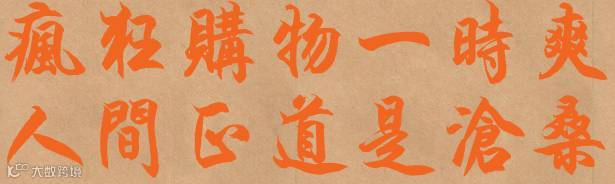 瘋狂購物一時爽
人間正道是滄桑
大数跨境